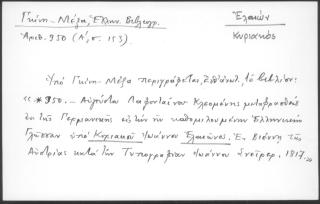 Γκίνη - Μέξα, Ἑλλην. Βιβλιογρ.
Ἀριθ. 950 (Α', σ. 153)
Ἑλακών
Κυριακός
Ὑπό Γκίνη - Μέξα περιγράφεται τό βιβλίον:
« * 950. - Αὐγούστου Λαφονταίνου Κλεομένης μεταφρασθείς
ἐκ τῆς Γερμανικῆς εἰς τήν καθομιλουμένην Ἑλληνικήν
Γλῶσσαν ὑπό Κυριακοῦ Ἰωάννου Ἐν Βιέννῃ τῆς
Αὐστρίας κατά τήν Τυπογραφίαν Ἰωάννου Σνοίρερ, 1817.»